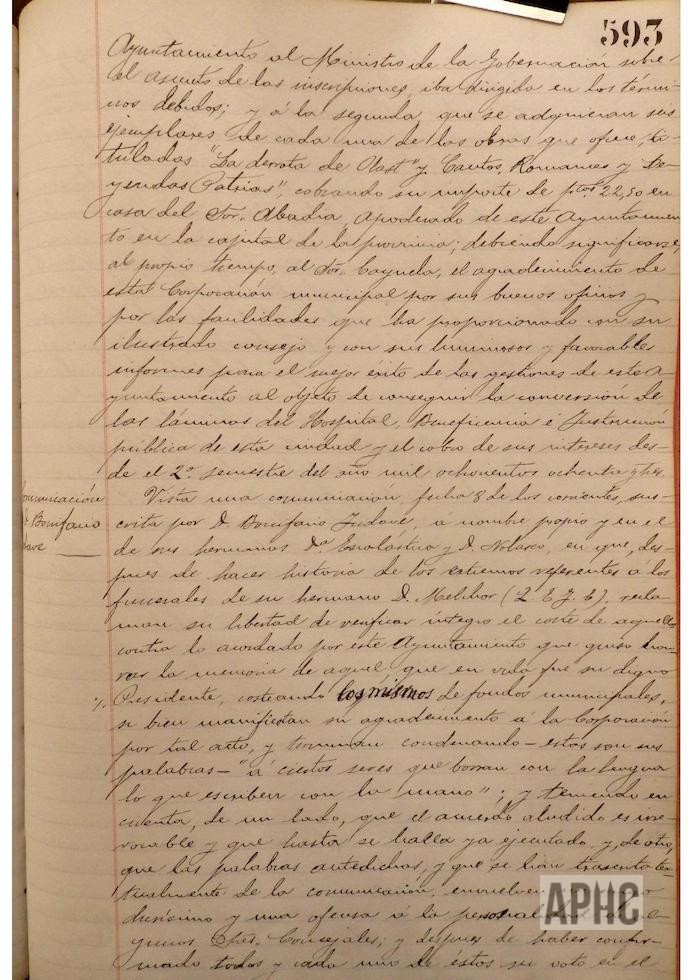 593
Ayuntamiento al Ministro de la Gobernación sobre
el asunto de las inscripciones, iba dirigida en los térmi-
nos debidos; y á la segunda, que se adquieran seis
ejemplares de cada una de las obras que ofrece, ti-
tuladas "La derrota de" y Cantos, Romances y Le-
yendas Patrias", cobrando su importe de ptas 22,50 en
casa del Sor. Abadía, apoderado de este Ayuntamien-
to en la capital de la provincia; debiendo significarse,
al propio tiempo, al Sor. Cayuela, el agradecimiento de
esta Corporación municipal por sus buenos oficios y
por las facilidades que ha proporcionado con su
ilustrado consejo y con sus luminosos y favorables
informes para el mejor éxito de las gestiones de este A-
yuntamiento al objeto de conseguir la conversión de
las láminas del Hospital, Beneficencia é Instrucción
pública de esta ciudad y el cobro de sus intereses des-
de el 2º semestre del año mil ochocientos ochenta y tres.
Comunicación
D. Bonifacio
Vista una comunicación, fecha 8 de los corrientes, sus-
crita por D. Bonifacio, a nombre propio y en el
de sus hermanos Dª Escolástica y D. Nolasco, en que, des-
pues de hacer historia de los extremos referentes á los
funerales de su hermano D. Melchor (Q. E. G. E), recla-
man su libertad de verificar íntegro el coste de aquellos
contra lo acordado por este Ayuntamiento que quiso hon-
rar la memoria de aquel que en vida fue su digno
Presidente, costeando los mismos de fondos municipales,
si bien manifiestan su agradecimiento á la Corporación
por tal acto, y terminan condenando - estas son sus
palabras - "á ciertos seres que borran con la lengua
lo que escriben con la mano"; y teniendo en
cuenta, de un lado, que el acuerdo aludido es irre-
vocable y que hasta se halla ya ejecutado, y, de otro,
que las palabras antedichas, y que se han trascrito tex-
tualmente de la comunicación, envuelven un cargo
durísimo y una ofensa á la personalidad de al-
gunos Sres. Concejales; y despues de haber confir-
mado todos y cada uno de estos su voto en el
APHC